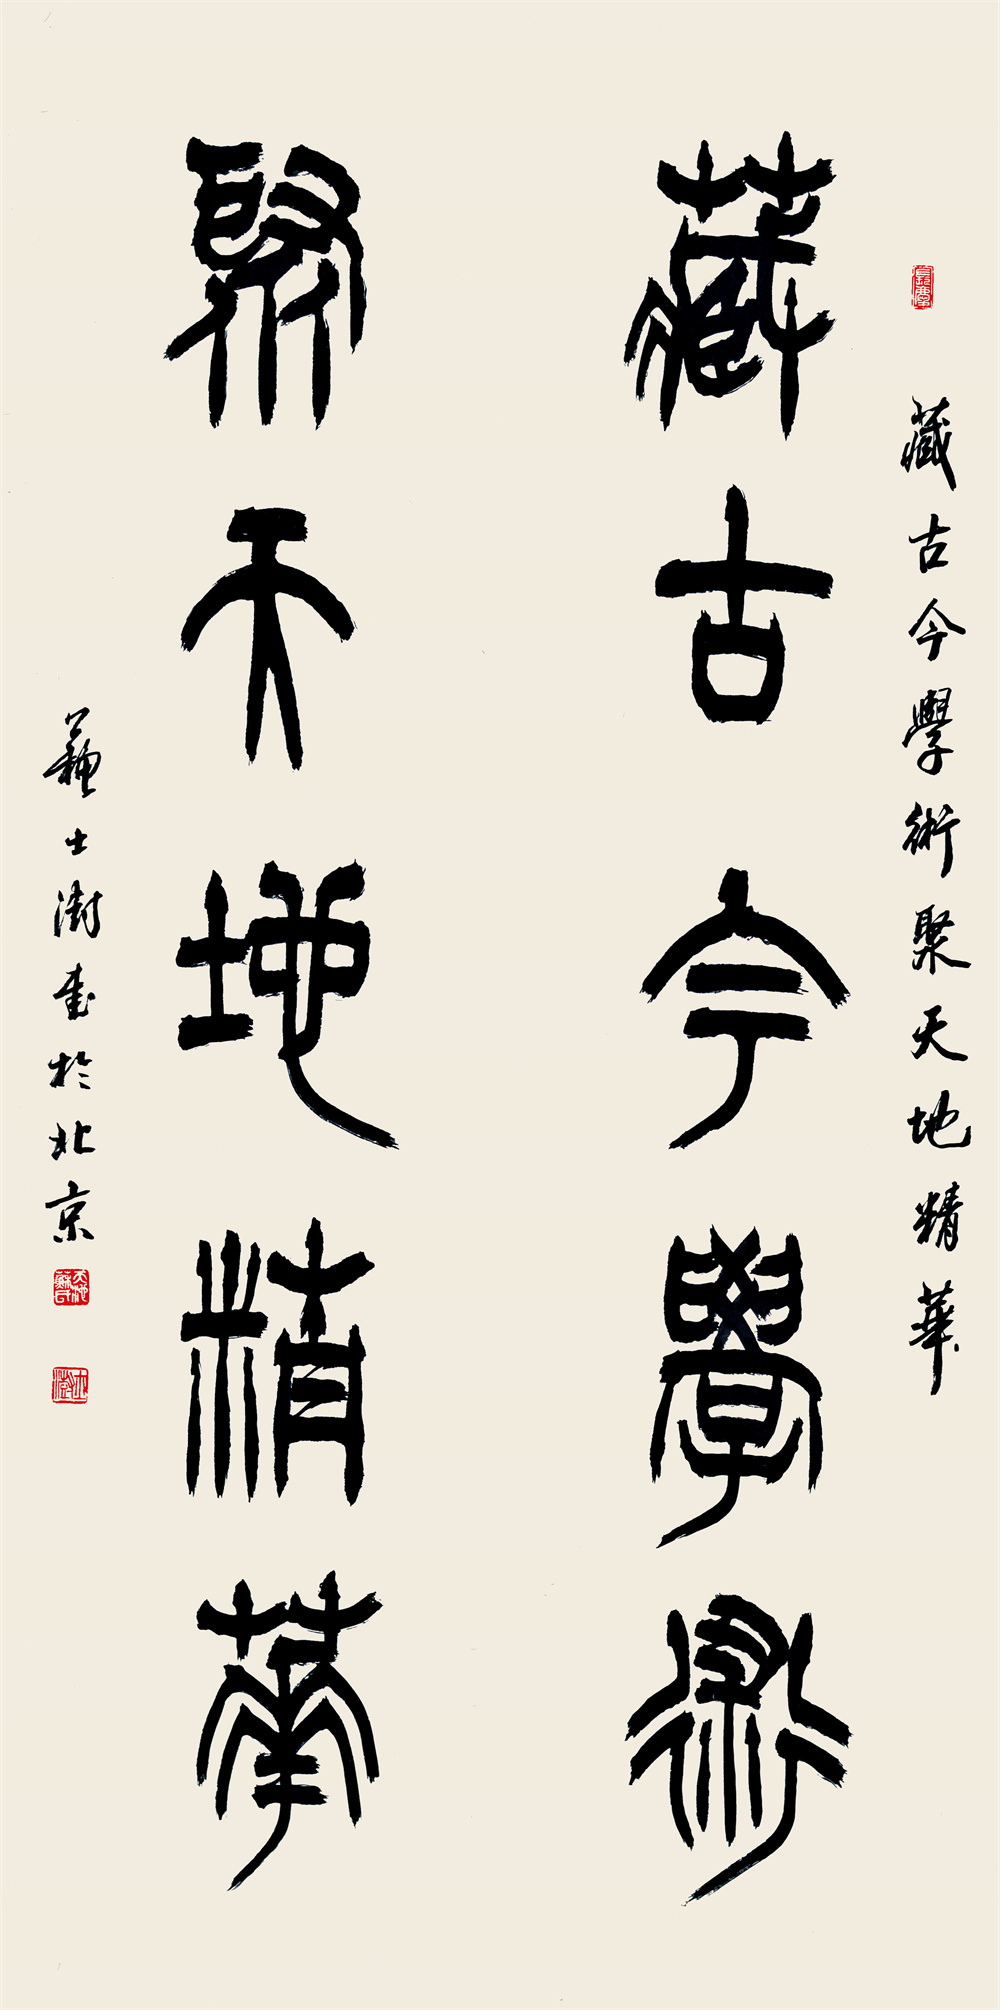 藏古今學術
聚天地精華
藏古今學術聚天地精華
蘇士澍書於北京